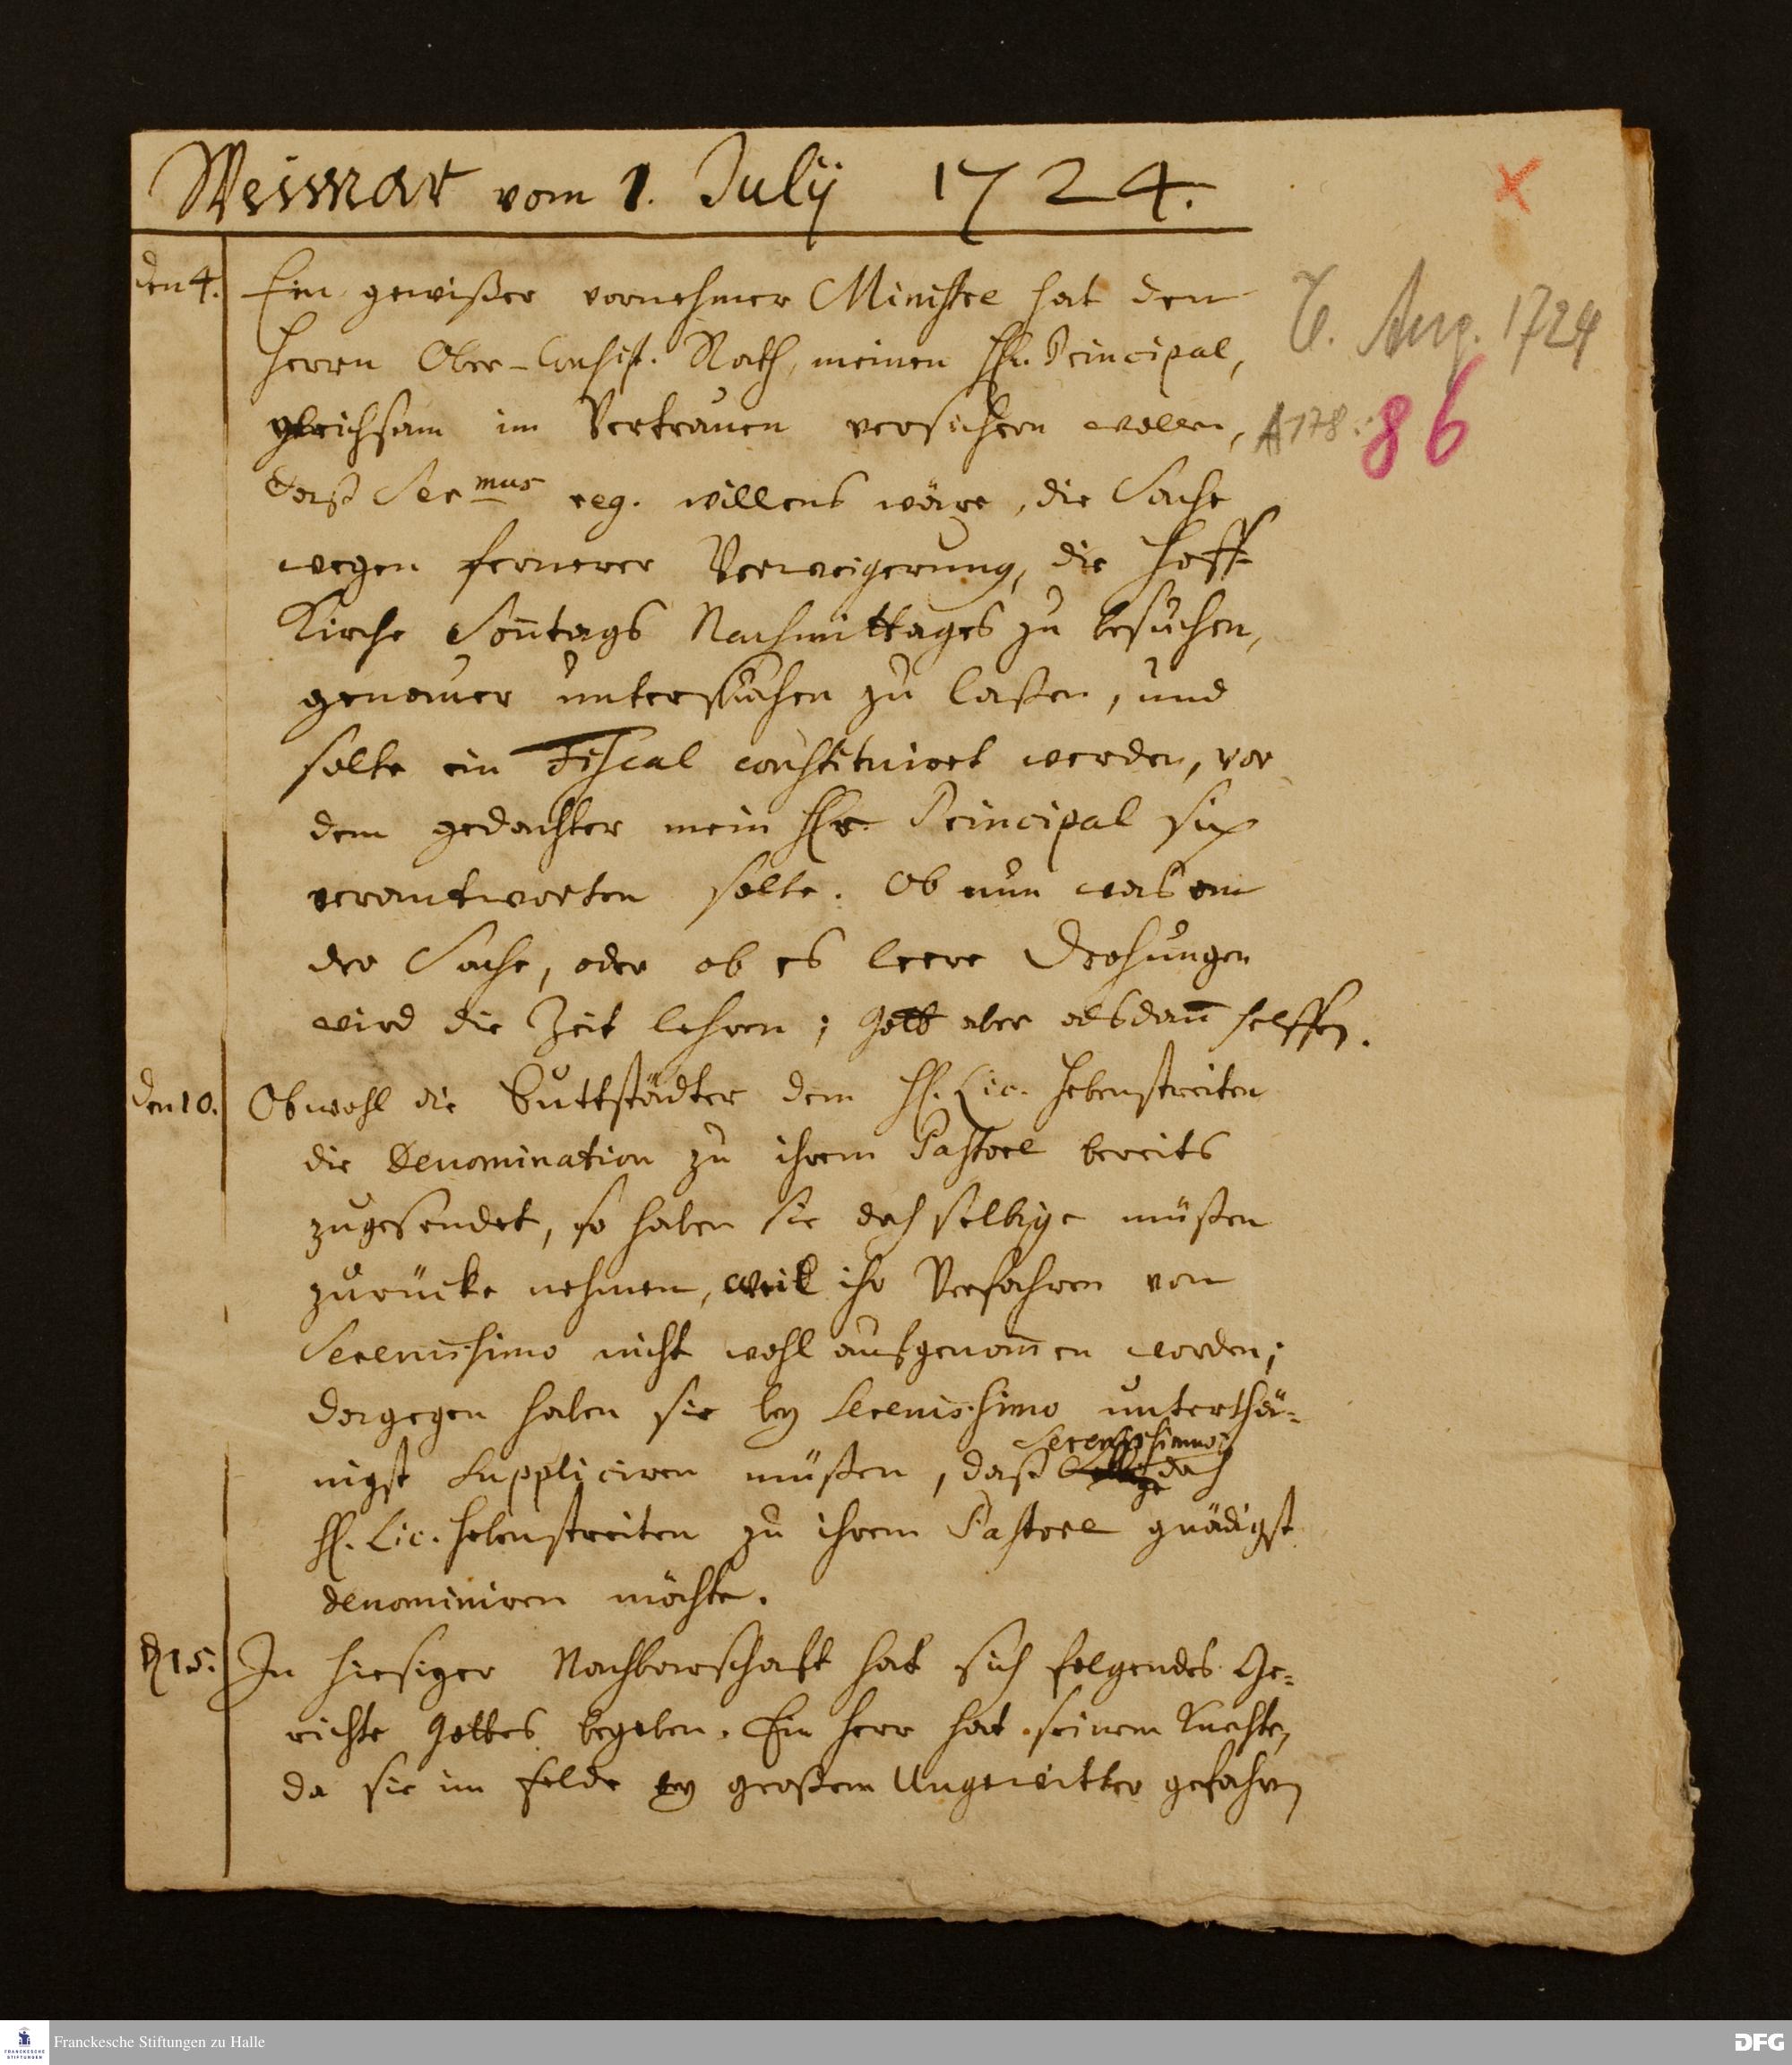 Weimar vom 1. Julij 1724.
den 4. Ein gewißer vornehmer Ministre hat den
Herrn Ober-Consist. Rath, meinen Hln. Principal,
gleichsam im Vertrauen versichern wollen,
daß Ser mus reg. willens wäre, die Sache
wegen fernerer Verweigerung, die Hoff-
Kirche Son̄tags Nachmittages zu besuchen,
genauer untersuchen zu laßen, und
solte ein Fiscal constituiret werden, vor
dem gedachter mein Hr. Principal sich
verantworten solte. Ob nun was an
der Sache, oder ob es leere Drohungen
wird die Zeit lehren; Gott aber alsdan̄ helffen.
den 10. Obwohl die Buttstädter dem H. Lic. Hebenstreiten
die Denomination zu ihrem Pastore bereits
zugesendet, so haben sie doch selbige müßen
zurücke nehmen, weil ihr Verfahren von
Serenissimo nicht wohl aufgenom̄en worden;
dargegen haben sie bey Serenissimo unterthä-
Serenissimus
nigst suppliciren müßen, daß doch
H. Lic. Hebenstreiten zu ihrem Pastore gnädigst
denominiren möchte.
d. 15. In hiesiger Nachbarschafft hat sich folgendes Ge-
richte Gottes begeben. Ein Herr hat seinem Knechte,
da sie im Felde bey großem Ungewitter gefahren
Aug. 1724
A 178: 86
Franckesche Stiftungen zu Halle
FRANCKESCHE
STIFTUNGEN
DFG